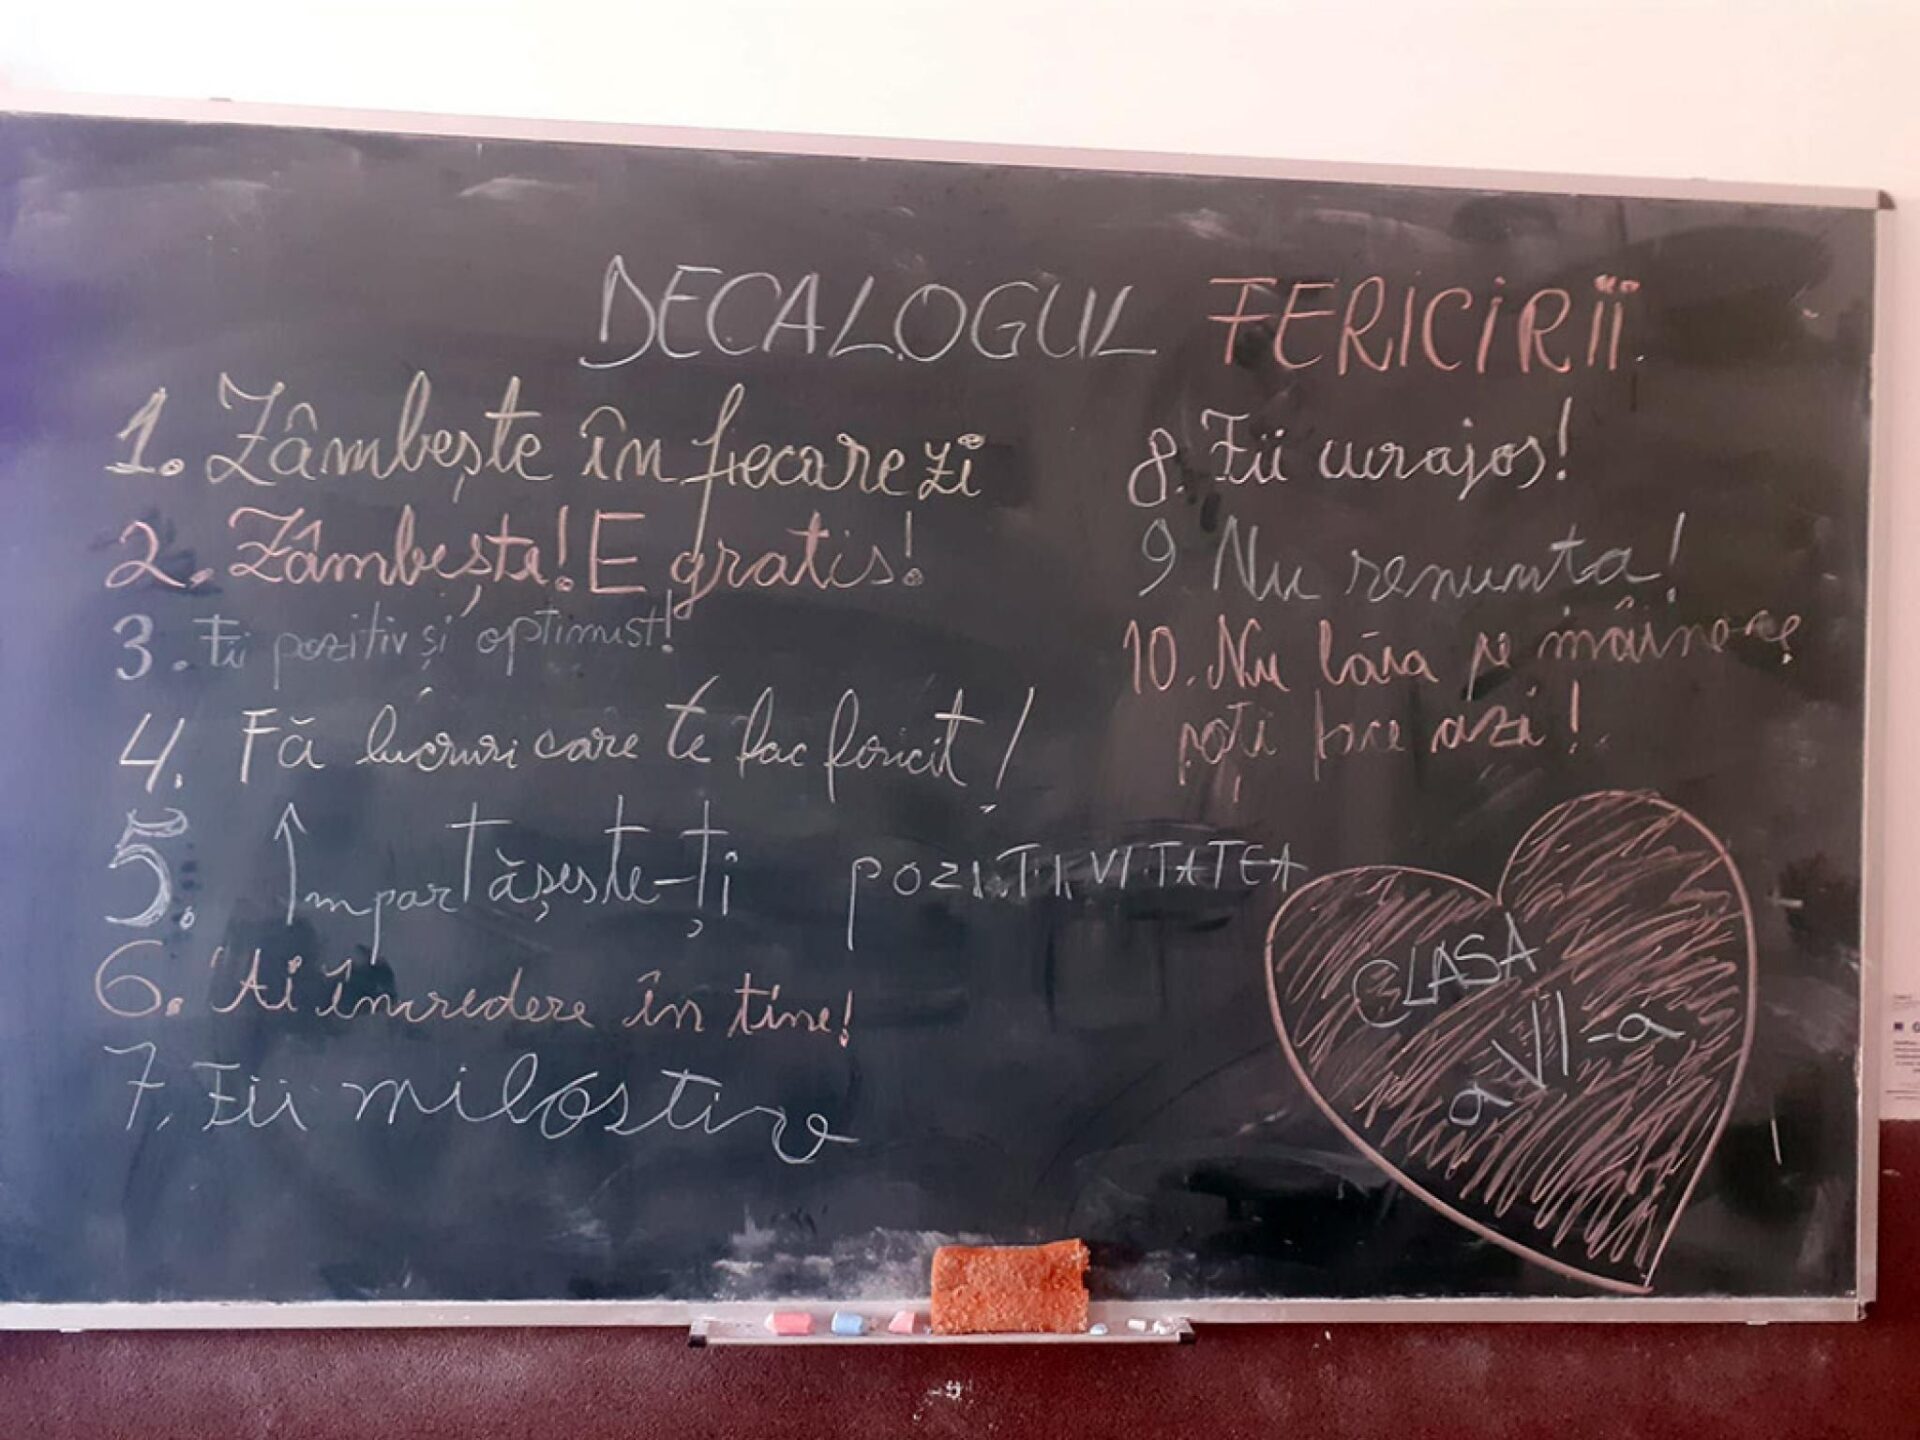 DECALOGUL FERICIRII
1. Zâmbește în fiecare zi
2. Zâmbește! E gratis!
3. Fii pozitiv și optimist!
4. Fă lucruri care te fac fericit!
5. Împărtășește-ți pozitivitatea
6. Ai încredere în tine!
7. Fii milostiv
8. Fii curajos!
9 Nu renunța!
10. Nu lăsa pe mâine ce
poți face azi!
CLASA
a VI-a